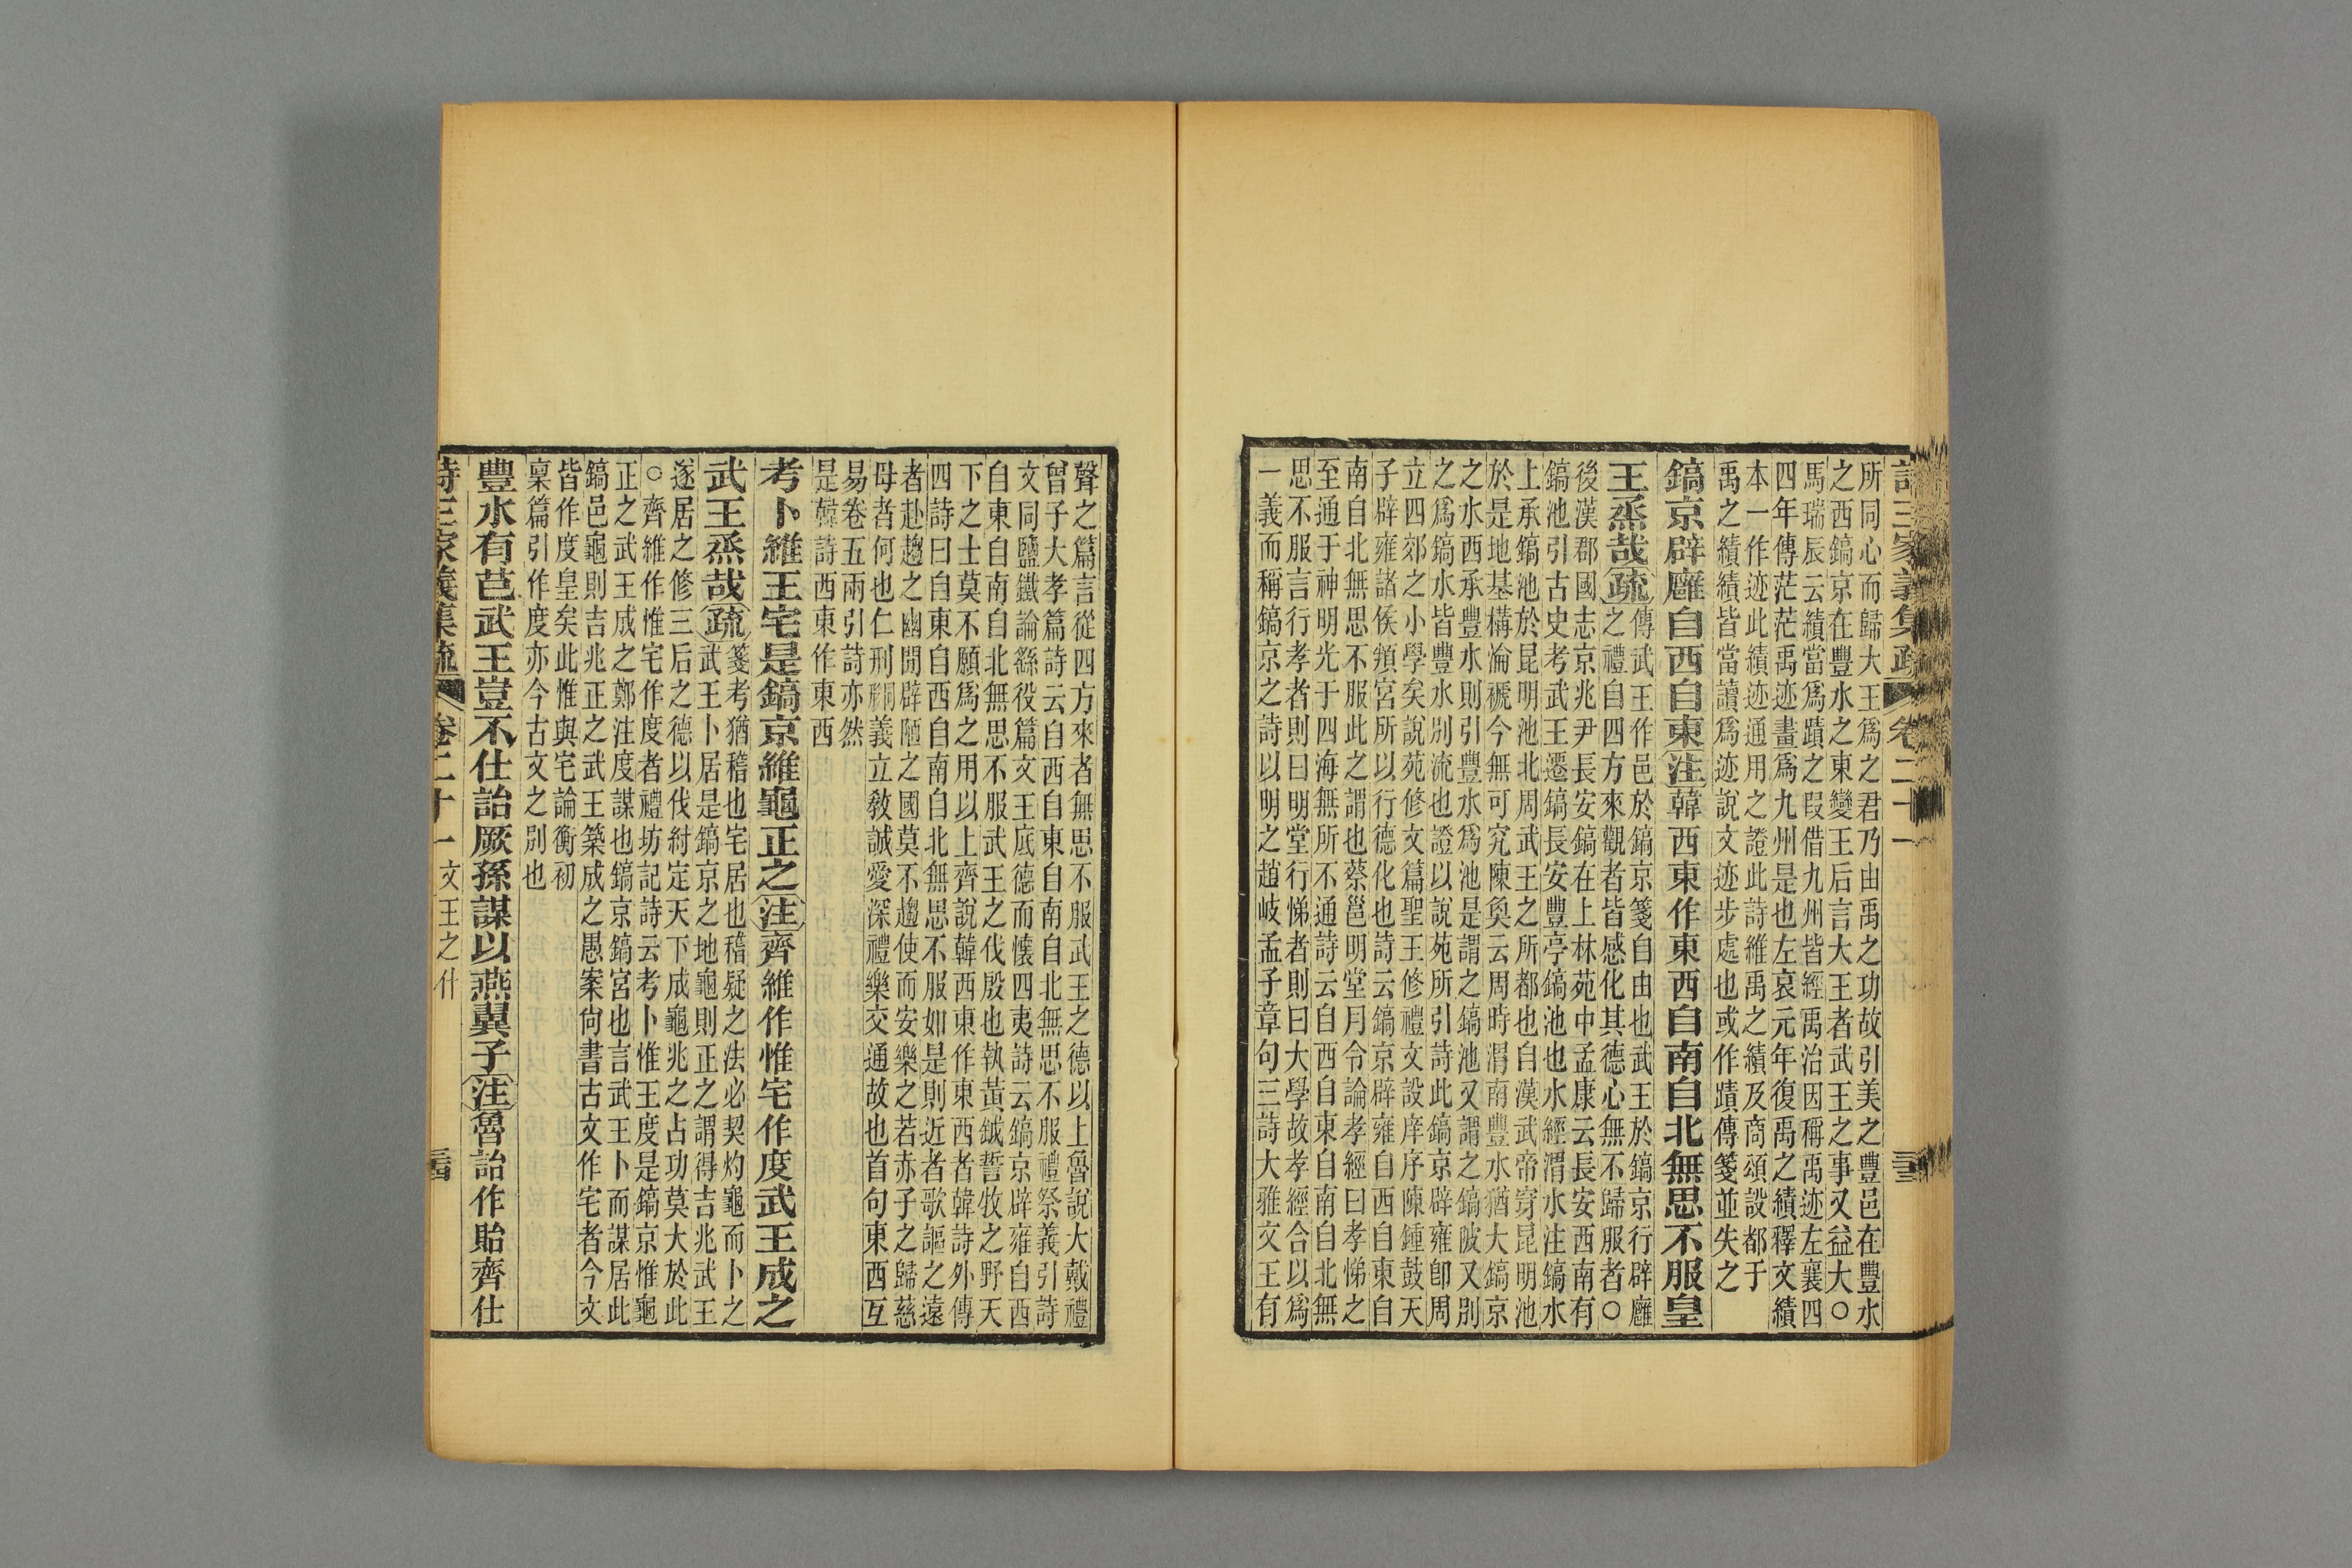 詩三家義集疏 卷二十一 三三
所同心而歸大王爲之君乃由禹之功故引美之豐邑在豐水
之西鎬京在豐水之東變王后言大王者武王之事又益大○
馬瑞辰云績當爲蹟之叚借九州皆經禹治因稱禹迹左襄四
四年傳茫茫禹迹畫爲九州是也左哀元年復禹之績釋文績
本一作迹此績迹通用之證此詩維禹之績及商頌設都于
禹之績績皆當讀爲迹說文迹步處也或作蹟傳箋並失之
鎬京辟廱自西自東注韓西東作東西自南自北無思不服皇
王烝哉疏傳武王作邑於鎬京箋自由也武王於鎬京行辟廱
之禮自四方來觀者皆感化其德心無不歸服者○
後漢郡國志京兆尹長安鎬在上林苑中孟康云長安西南有
鎬池引古史考武王遷鎬長安豐亭鎬池也水經渭水注鎬水
上承鎬池於昆明池北周武王之所都也自漢武帝穿昆明池
於是地基構淪褫今無可究陳奐云周時渭南豐水猶大鎬京
之水西承豐水則引豐水爲池是謂之鎬池又謂之鎬陂又別
之爲鎬水皆豐水別流也證以說苑所引詩此鎬京辟雍卽周
立四郊之小學矣說苑修文篇聖王修禮文設庠序陳鍾鼓天
子辟雍諸侯頖宮所以行德化也詩云鎬京辟雍自西自東自
南自北無思不服此之謂也蔡邕明堂月令論孝經曰孝悌之
至通于神明光于四海無所不通詩云自西自東自南自北無
思不服言行孝者則曰明堂行悌者則曰大學故孝經合以爲
一義而稱鎬京之詩以明之趙岐孟子章句三詩大雅文王有
聲之篇言從四方來者無思不服武王之德以上魯說大戴禮
曾子大孝篇詩云自西自東自南自北無思不服禮祭義引詩
文同鹽鐵論繇役篇文王底德而懷四夷詩云鎬京辟雍自西
自東自南自北無思不服武王之伐殷也執黃鉞誓牧之野天
下之士莫不願爲之用以上齊說韓西東作東西者韓詩外傳
四詩曰自東自西自南自北無思不服如是則近者歌謳之遠
者赴趨之幽閒辟陋之國莫不趨使而安樂之若赤子之歸慈
母者何也仁刑義立敎誠愛深禮樂交通故也首句東西互
易卷五兩引詩亦然
是韓詩西東作東西
考卜維王宅是鎬京維龜正之注齊維作惟宅作度武王成之
武王烝哉疏箋考猶稽也宅居也稽疑之法必契灼龜而卜之
武王卜居是鎬京之地龜則正之謂得吉兆武王
遂居之修三后之德以伐紂定天下成龜兆之占功莫大於此
○齊維作惟宅作度者禮坊記詩云考卜惟王度是鎬京惟龜
正之武王成之鄭注度謀也鎬京鎬宮也言武王卜而謀居此
鎬邑龜則吉兆正之武王築成之愚案尙書古文作宅者今文
皆作度皇矣此惟與宅論衡初
稟篇引作度亦今古文之別也
豐水有芑武王豈不仕詒厥孫謀以燕翼子注魯詒作貽齊仕
詩三家義集疏 卷二十一 文王之什 三四